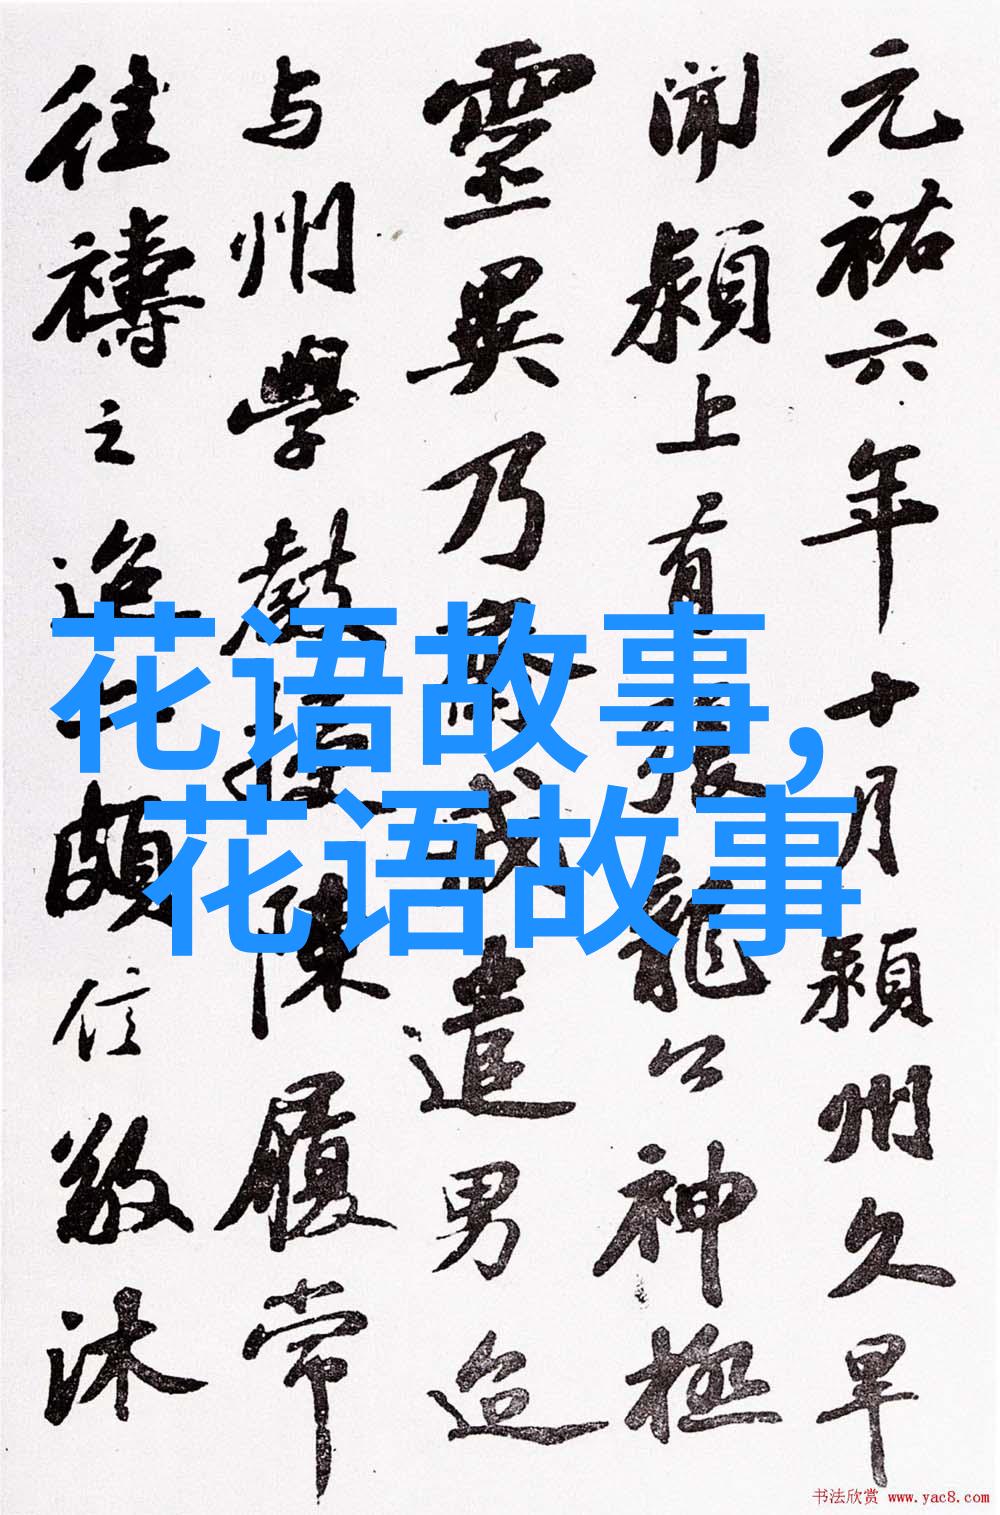 元祐六年十月潁州久旱
聞潁上有張龍公神極
靈異乃齋戒遣男迨
与州學教授陳履常
往禱之迨亦頗信敬沐
花语故事,
花语故事
书法欣赏 www.yac8.com